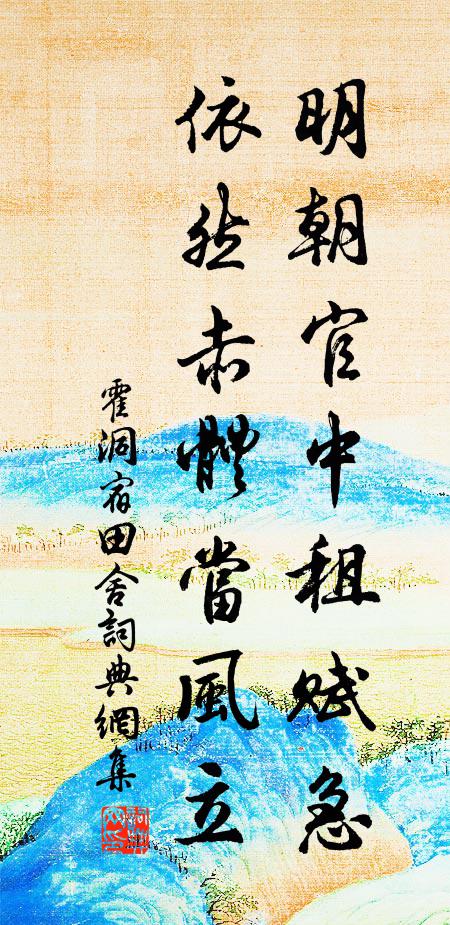 明朝官中租赋急
依然赤體當風立
霍洞宿田舍詞典網集